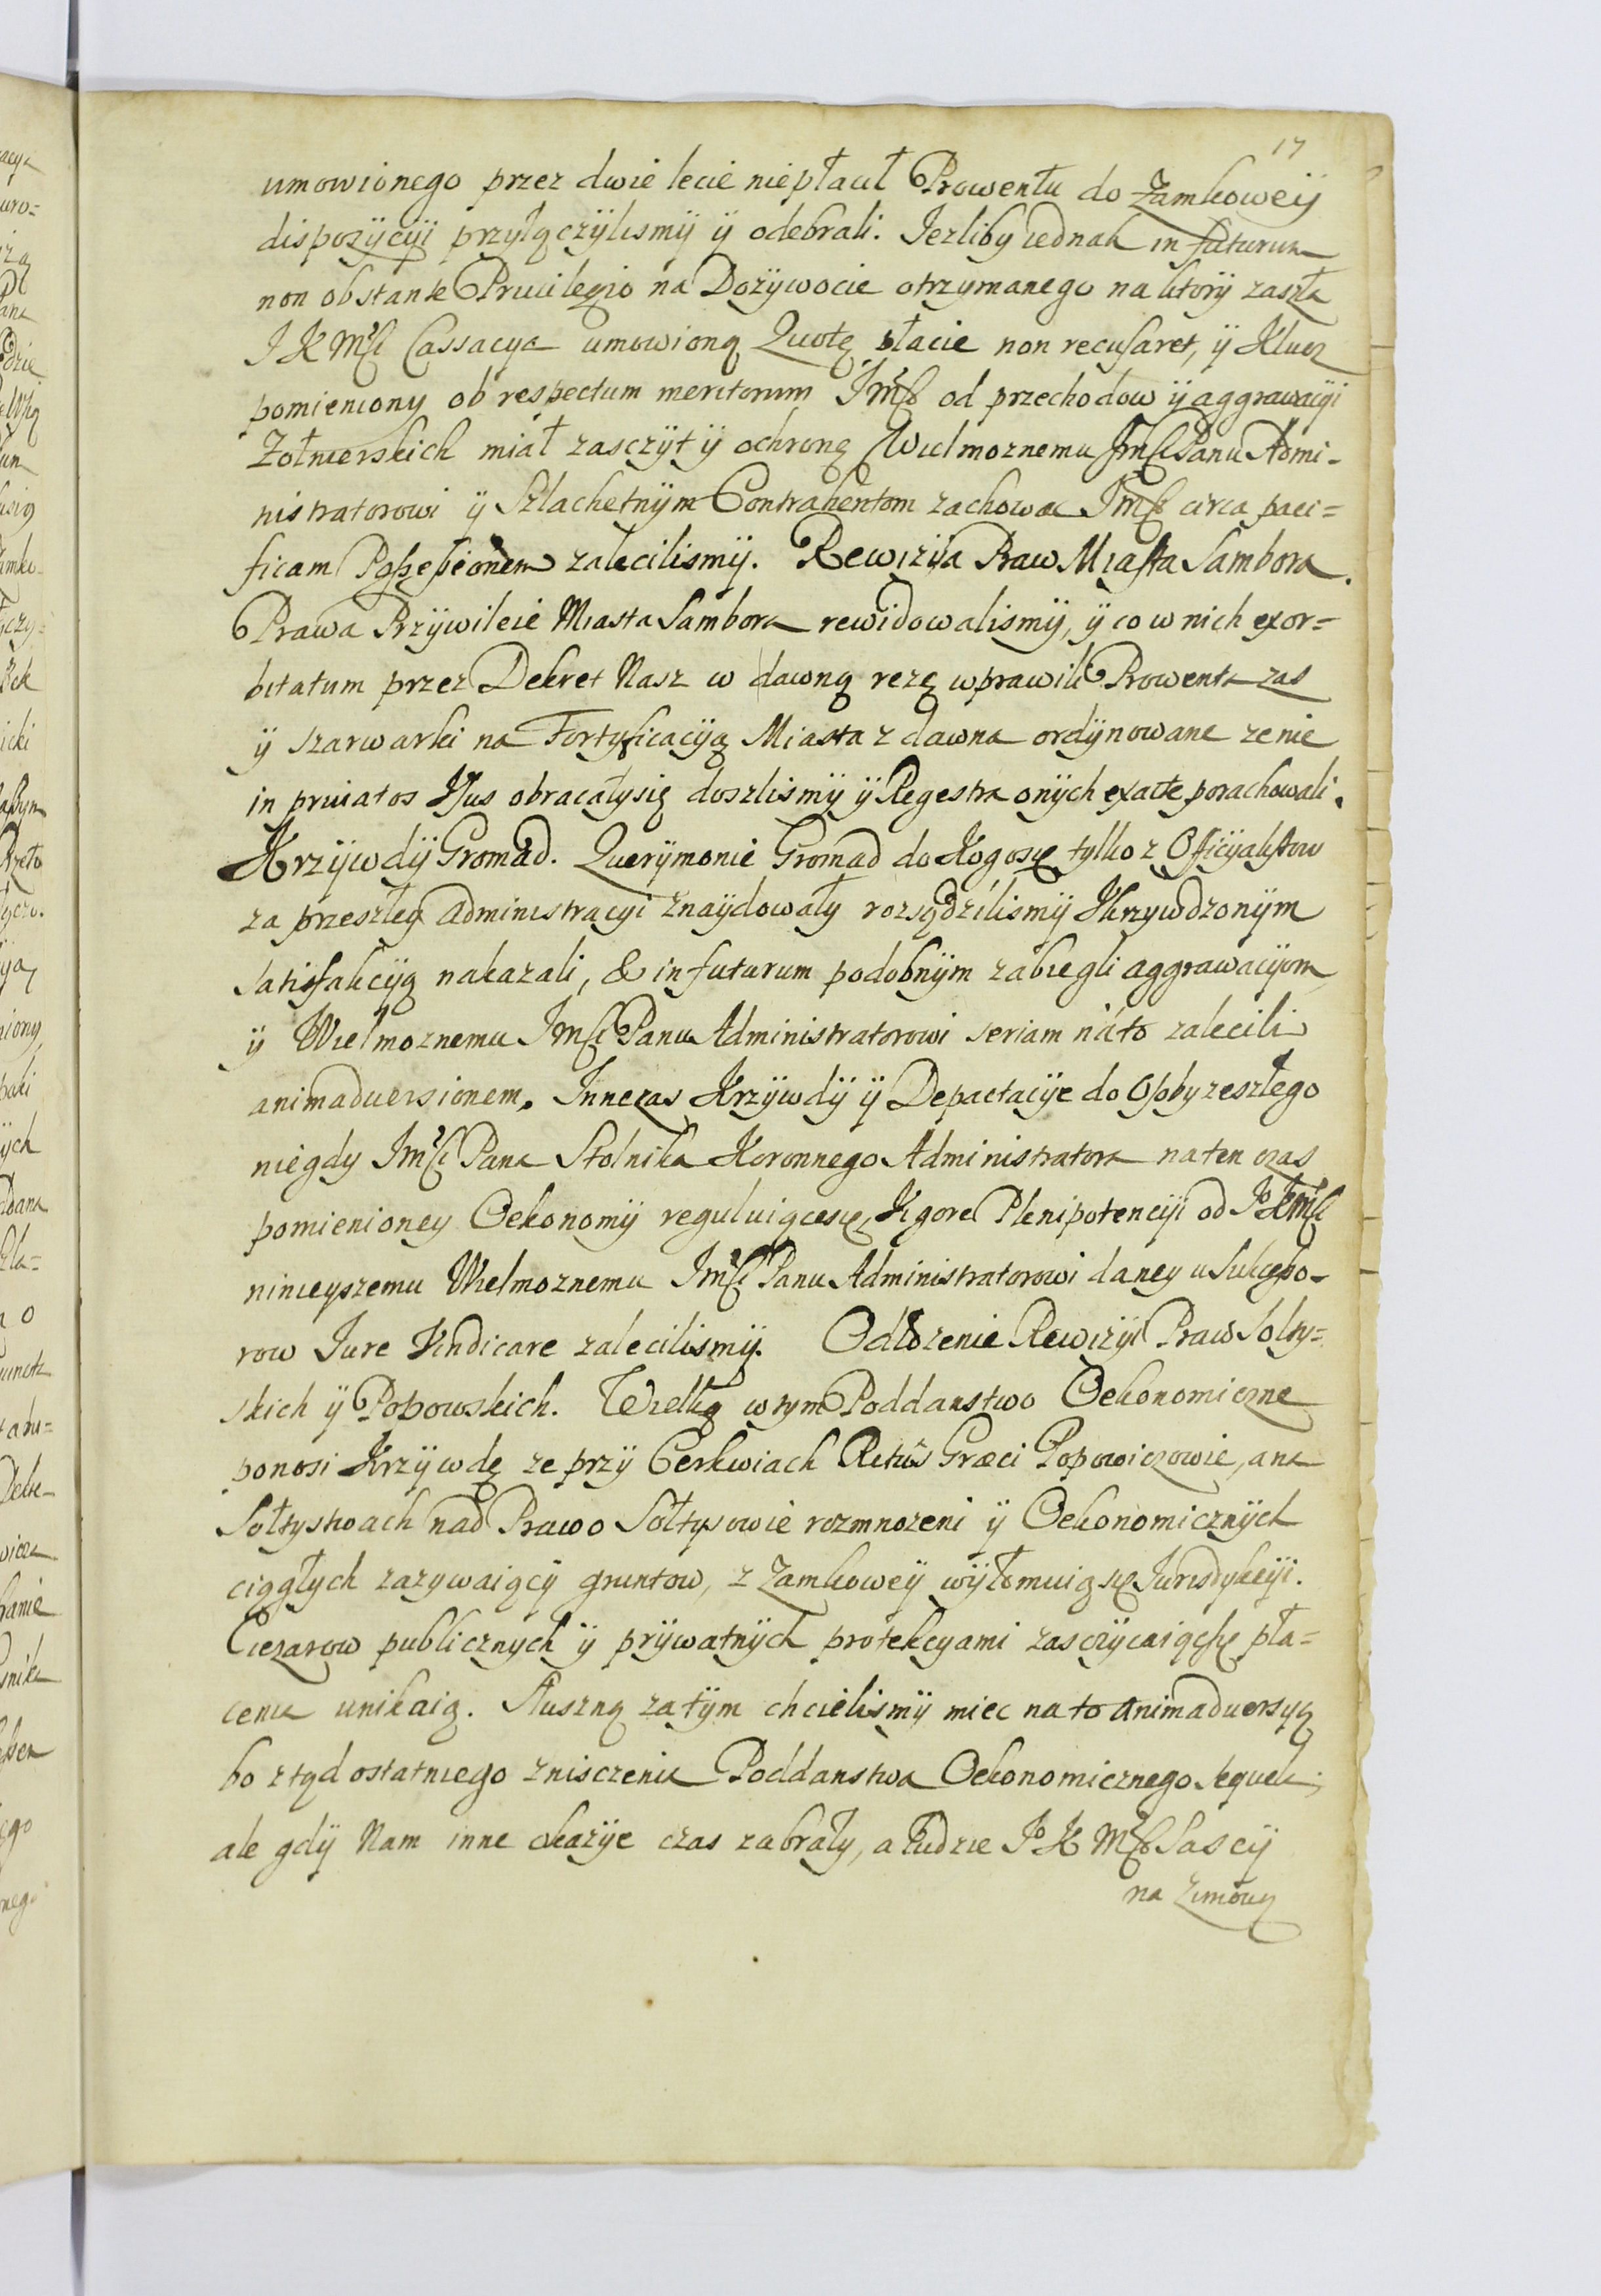 17
umowionego przez dwie lecie niepłacił Prowentu do Zamkoweÿ
dispozÿcÿi przyłączÿlismÿ ÿ odebrali. Iezliby iednak in futurum
non obstante Priuilegio na Dozÿwocie otrzymanego na ktorÿ zaszła
J K Mści Cassacya umowioną Quotę płacic non recusaret, ÿ Klucz
pomieniony ob respectum meritorum Jmści od przechodow ÿ aggrawacÿi
Zołnierskich miał zasczÿt ÿ ochronę Wielmoznemu Jmści Panu Admi-
nistratorowi ÿ Szlachetnÿm Contrahentom zachowac Jmści circa paci=
ficam Possessionem zalecilismÿ. Rewizÿia Praw Miasta Sambora.
Prawa Przÿwileie Miasta Sambora rewidowalismÿ, ÿ co w nich exor=
bitatum przez Dekret Nasz w dawną rezę wprawili Prowenta zas
ÿ szarwarki na Fortyficacÿą Miasta z dawna ordÿnowane ze nie
in priuatos Vsus obracałysię doszlismÿ ÿ Regestra onÿch exacte porachowali.
Krzÿwdÿ Gromad. Querÿmonie Gromad do Kogosię tylko z Officÿalistow
za przeszłeÿ administracyi znaÿdowały rozsądzilismÿ Vkrzywdzonÿm
satisfakcÿą nakazali, & in futurum podobnÿm zabiegli aggrawacÿom
ÿ Wielmoznemu Jmści Panu Administratorowi seriam na to zalecili
animaduersionem. Innezas Krzÿwdÿ ÿ Depactacÿe do Osoby zeszłego
niegdy Jmści Pana Stolnika Koronnego Administratora naten czas
pomienioney Oekonomÿ reguluiącesię, Vigore Plenipotencÿi od Jo KMści
ninieyszemu Wielmoznemu Jmści Panu Administratorowi daney u Sukcesso-
row Iure Vindicare zalecilismÿ. Odłozenie Rewizÿi Praw Soltÿ=
skich ÿ Popowskich. Wielką wtym Poddanstwo Oekonomiczne
ponosi Krzÿwdę ze przÿ Cerkwiach Ritus Græci Popowiczowie, a na
Sołtystwach nad Prawo Sołtysowie rozmnozeni ÿ Oekonomicznÿch
ciągłych zazywaiącÿ gruntow, z Zamkoweÿ wÿłomuią się Iurisdykcÿi.
Ciezarow publicznych ÿ prÿwatnÿch protekcyami zasczÿcaiącsię pła=
cenia unikaią. Słuszną zatÿm chcielismÿ miec na to animaduersyą
bo ztąd ostatniego znisczenia Poddanstwa Oekonomicznego sequela;
ale gdÿ Nam inne okazÿe czas zabrały, a Ludzie Jo K Mści Sascÿ
na Zimową